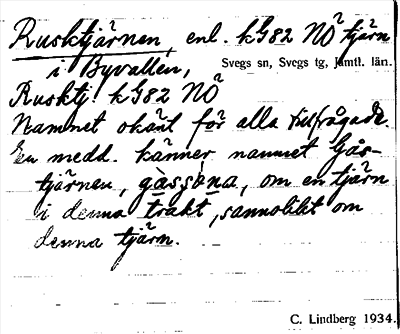 Rusktjärnen, enl. kG82 NÖ tjärn
i Byvallen,
Svegs sn, Svegs tg, Jämtl. län.
Rusktj. kG82 NÖ
Namnet okänt för alla tillfrågade.
En medd. känner namnet Gås-
tjärnen, gåssöna, om en tjärn
i denna trakt, sannolikt om
denna tjärn.
C. Lindberg 1934.